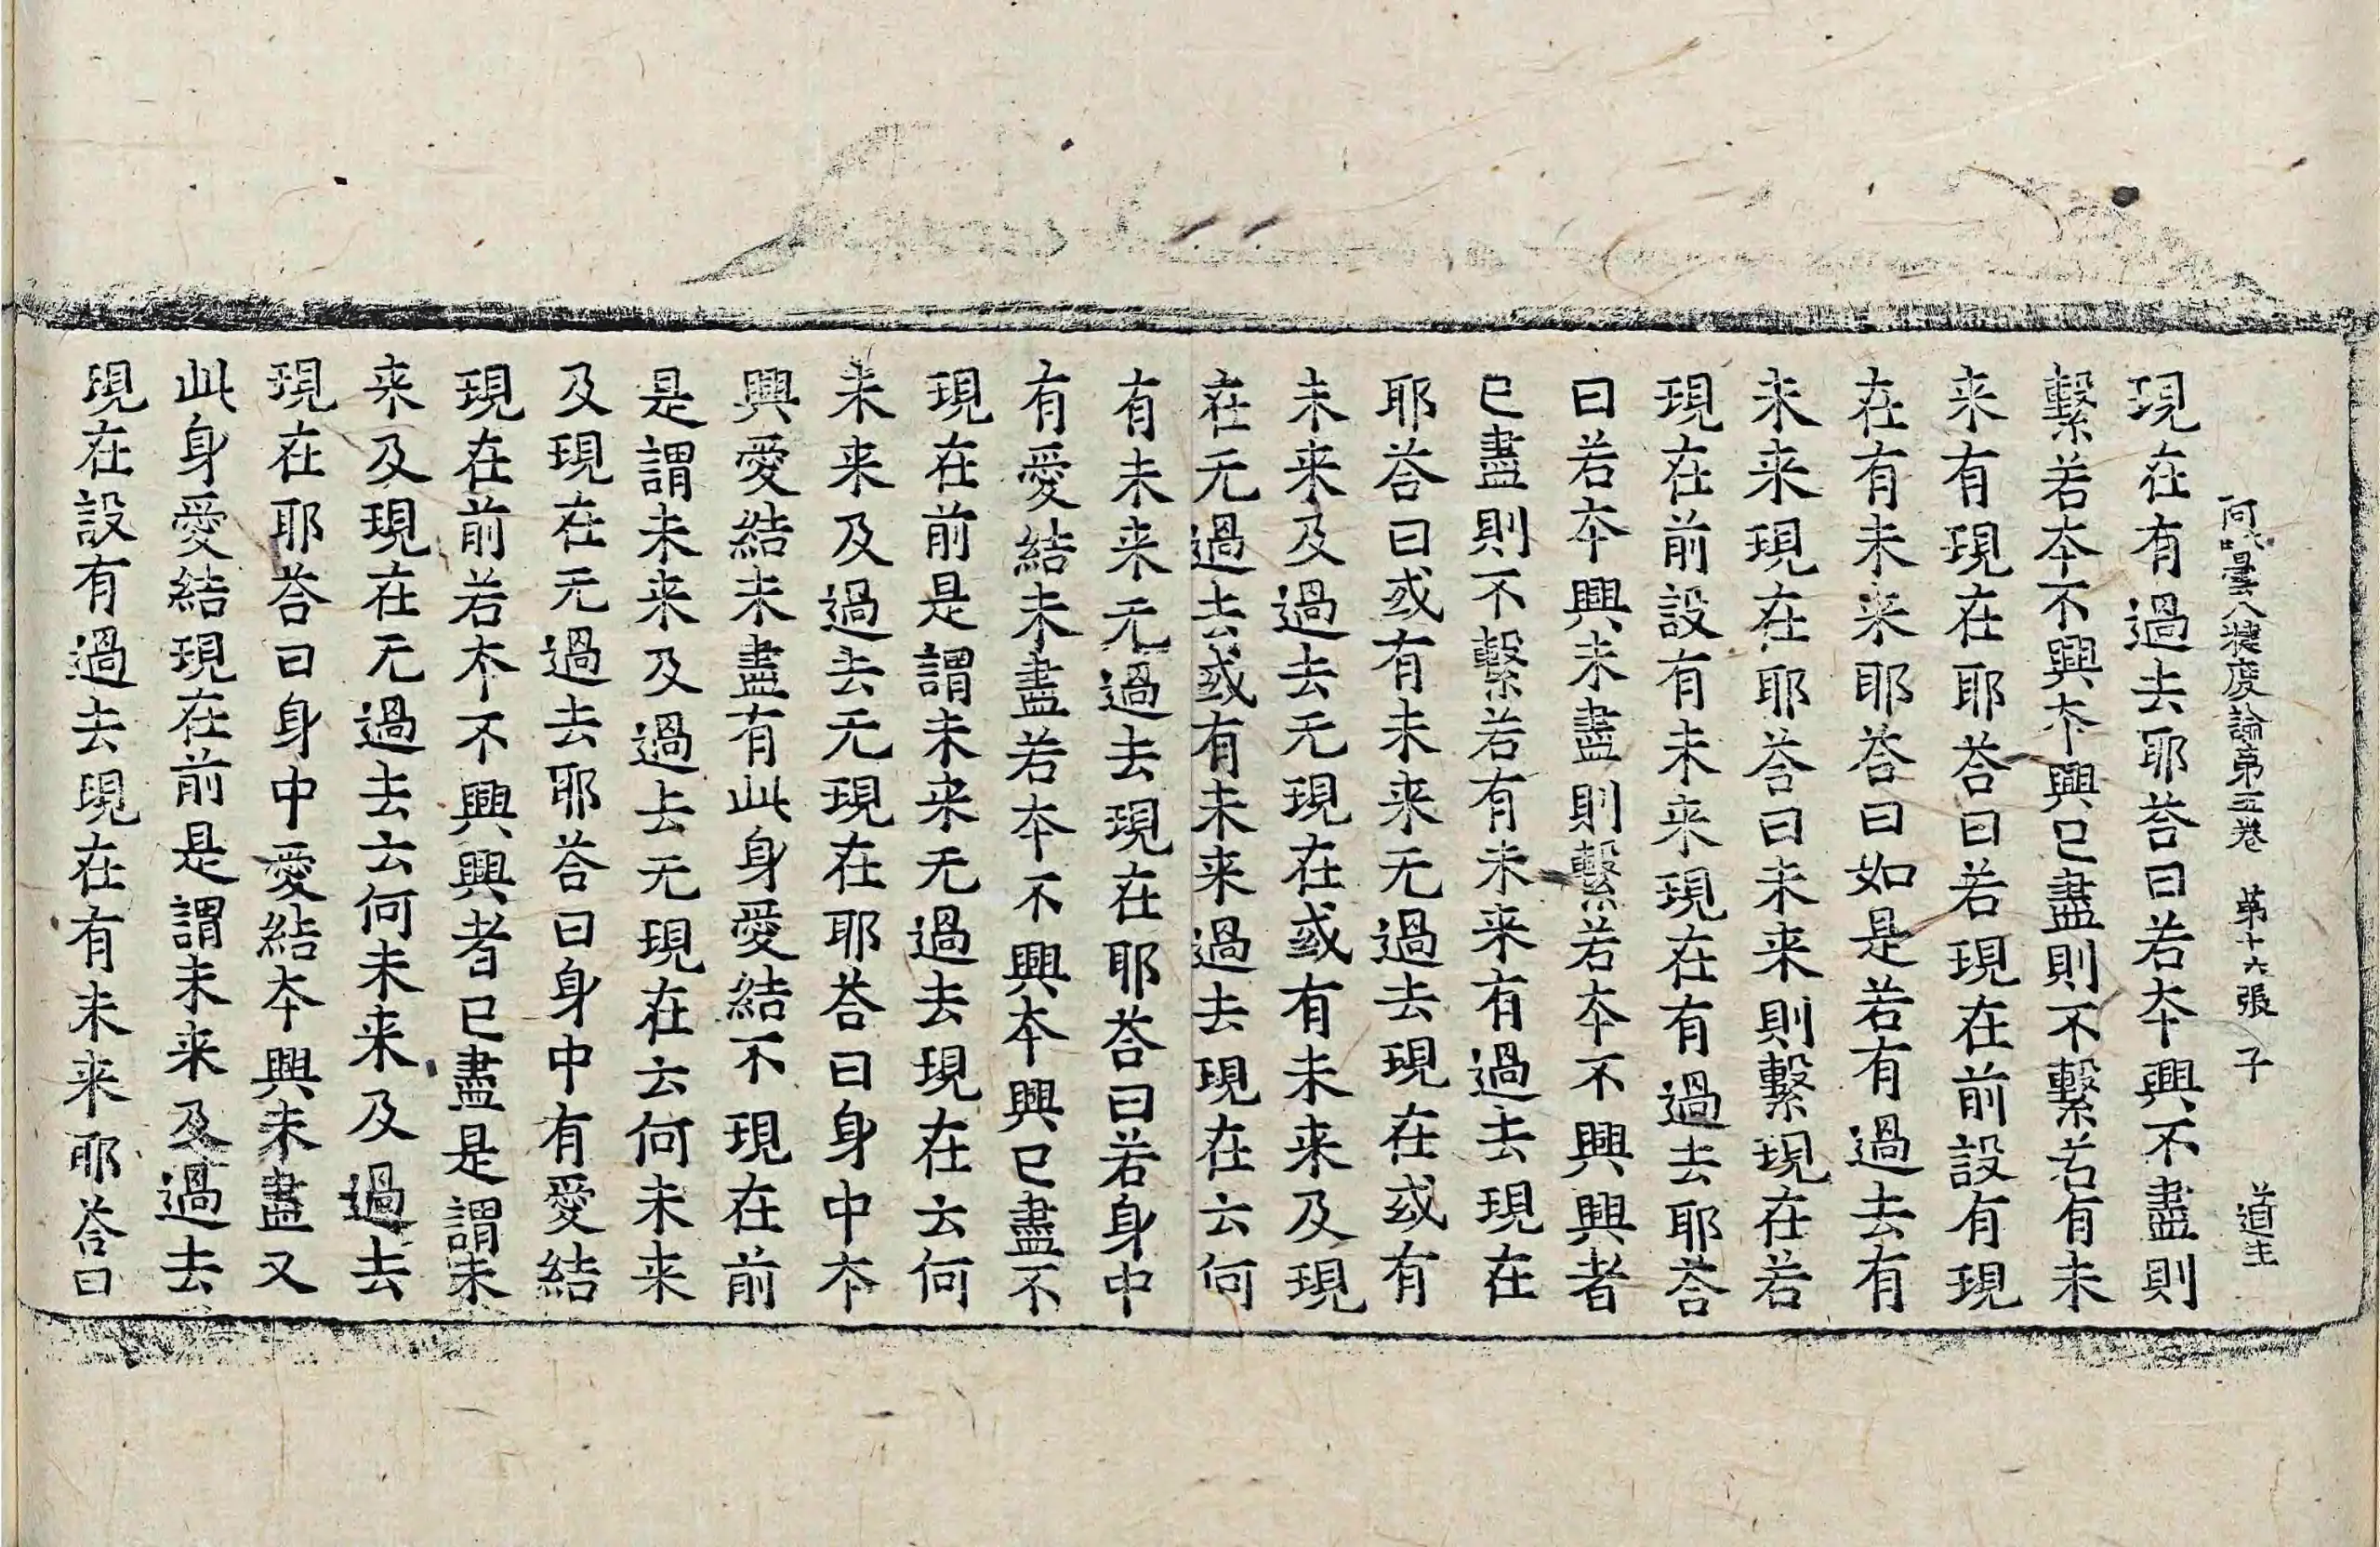 阿毗曇八揵度論第五卷 第十六張 子 道主
現在有過去耶荅曰若夲興不盡則
繫若夲不興夲興已盡則不繫若有未
来有現在耶荅曰若現在前設有現
在有未来耶荅曰如是若有過去有
未来現在耶荅曰未来則繫現在若
現在前設有未来現在有過去耶荅
曰若夲興未盡則繫若夲不興興者
已盡則不繫若有未来有過去現在
耶荅曰或有未来无過去現在或有
未来及過去无現在或有未来及現
在无過去或有未来過去現在云何
有未来无過去現在耶荅曰若身中
有愛結未盡若夲不興夲興已盡不
現在前是謂未来无過去現在云何
未来及過去无現在耶荅曰身中夲
興愛結未盡有此身愛結不現在前
是謂未来及過去无現在云何未来
及現在无過去耶荅曰身中有愛結
現在前若夲不興興者已盡是謂未
来及現在无過去云何未来及過去
現在耶荅曰身中愛結夲興未盡又
此身愛結現在前是謂未来及過去
現在設有過去現在有未来耶荅曰